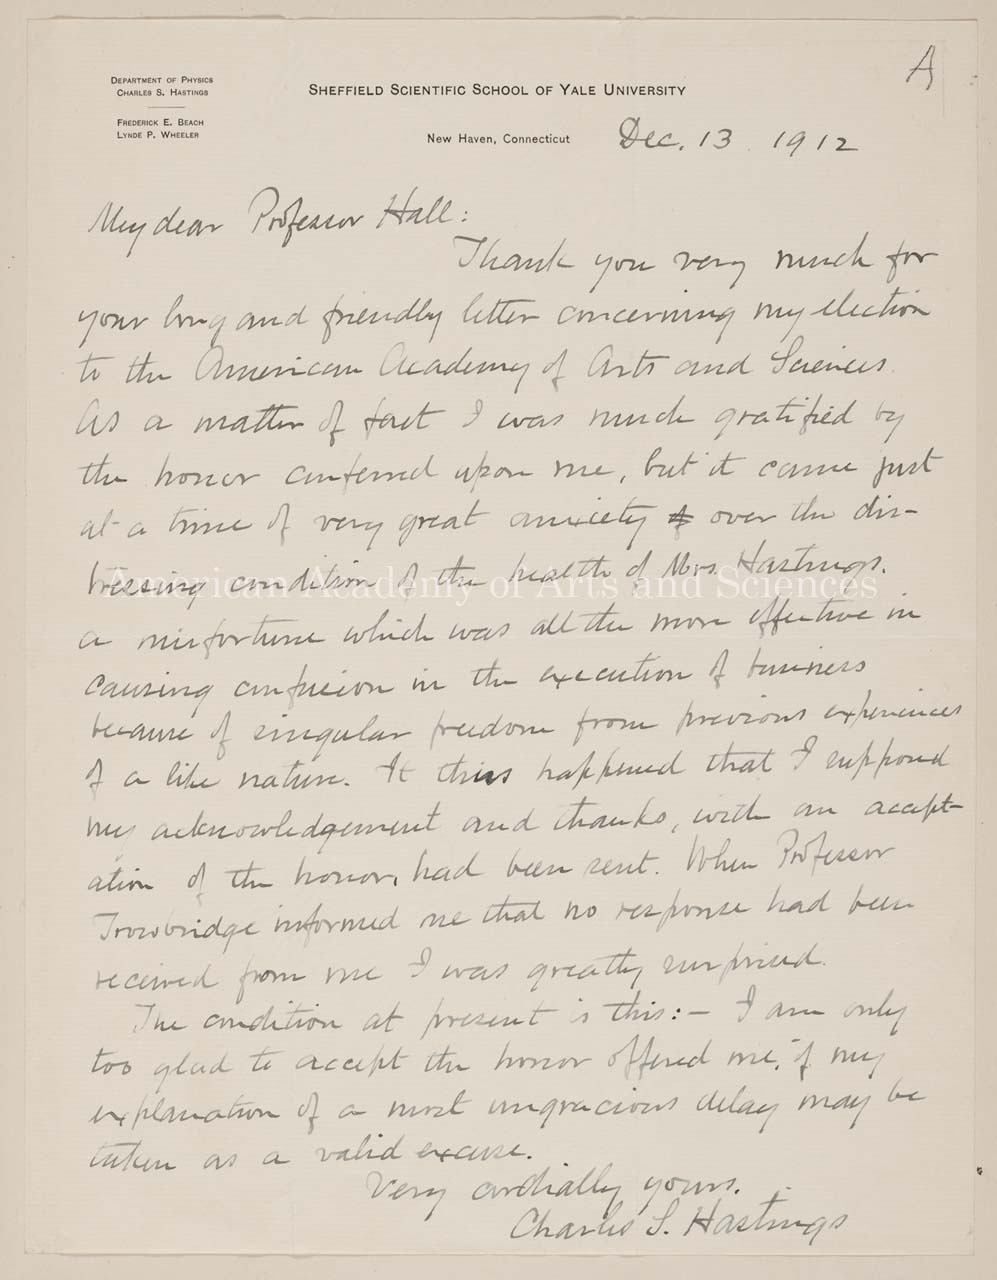 A
DEPARTMENT OF PHYSICS
CHARLES S. HASTINGS
FREDERICK E. BEACH
LYNDE P. WHEELER
SHEFFIELD SCIENTIFIC SCHOOL OF YALE UNIVERSITY
New Haven, Connecticut Dec. 13 1912
My dear Professor Hall:
Thank you very much for
your long and friendly letter concerning my election
to the American Academy of Arts and Sciences.
As a matter of fact I was much gratified by
the honor conferred upon me, but it came just
at a time of very great anxiety of over the dis-
tressing condition of the health of Mrs. Hastings.
American Academy of Arts and Sciences
a misfortune which was all the more effective in
causing confusion in the execution of business
because of singular freedom from previous experiences
of a like nature. It thus happened that I supposed
my acknowledgement and thanks, with an accept-
ation of the honor, had been sent. When Professor
Trowbridge informed me that no response had been
received from me I was greatly surprised.
The condition at present is this:- I am only
too glad to accept the honor offered me, if my
explanation of a most ungracious delay may be
taken as a valid excuse.
Very cordially yours.
Charles S. Hastings